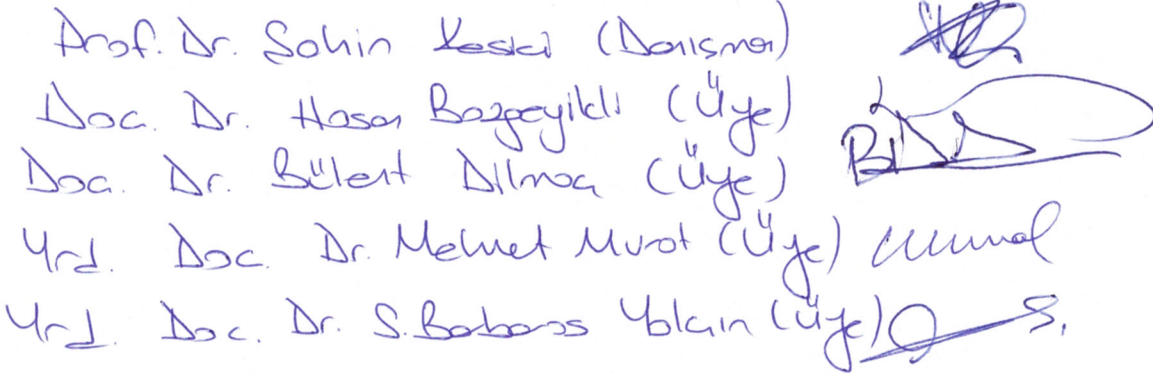 Prof. Dr. Şahin Kesici (Danışman)
Doc. Dr. Hasan Bozgeyikli (Üye)
Doc. Dr. Bülent Dilmaç (Üye)
Yrd. Doc. Dr. Mehmet Murat (Üye)
Yrd. Doc. Dr. S.Barbaros Yalçın (Üye)